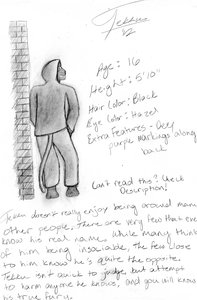 Age: 16
Height: 5'10"
Hair Color: Black
Eye Color: Hazel
Extra Features - Deep
purple markings along
back
Can't read this? Check
Description!
doesn't really enjoy being around many
other people. There are very few that even
know his real name. While many think
of him being insociable, the few close
to him know he's quite the opposite.
isn't quick to judge, but attempt
to harm anyone he knows, and you will know
his true fury.